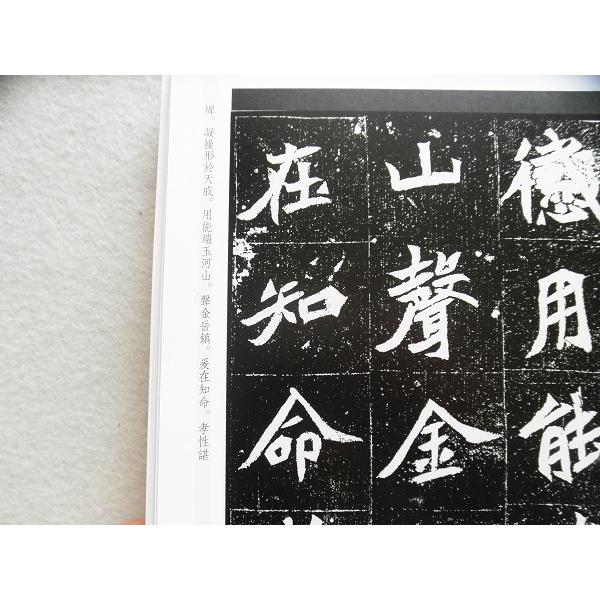 墀。凝操形於天戚。用能端玉河山。聲金岳鎮。爰在知命。孝性諶
用能
山聲金
在知命